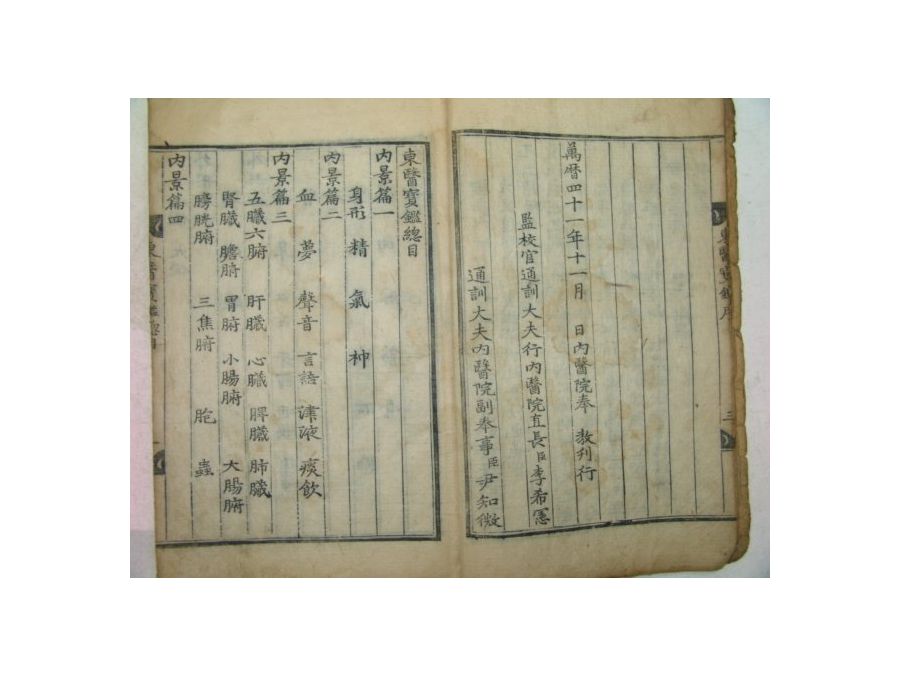 萬曆四十一年十一月 日內醫院奉 敎刊行
監校官通訓大夫行內醫院直長臣李希憲
通訓大夫內醫院副奉事臣尹知微
東醫寶鑑總目
內景篇一
身形 精 氣 神
內景篇二
血 夢 聲音 言語 津液 痰飮
內景篇三
五臟六腑 肝臟 心臟 脾臟 肺臟
腎臟 膽腑 胃腑 小腸腑 大腸腑
膀胱腑 三焦腑 胞 蟲
內景篇四
東醫寶鑑序 三
東醫寶鑑總目